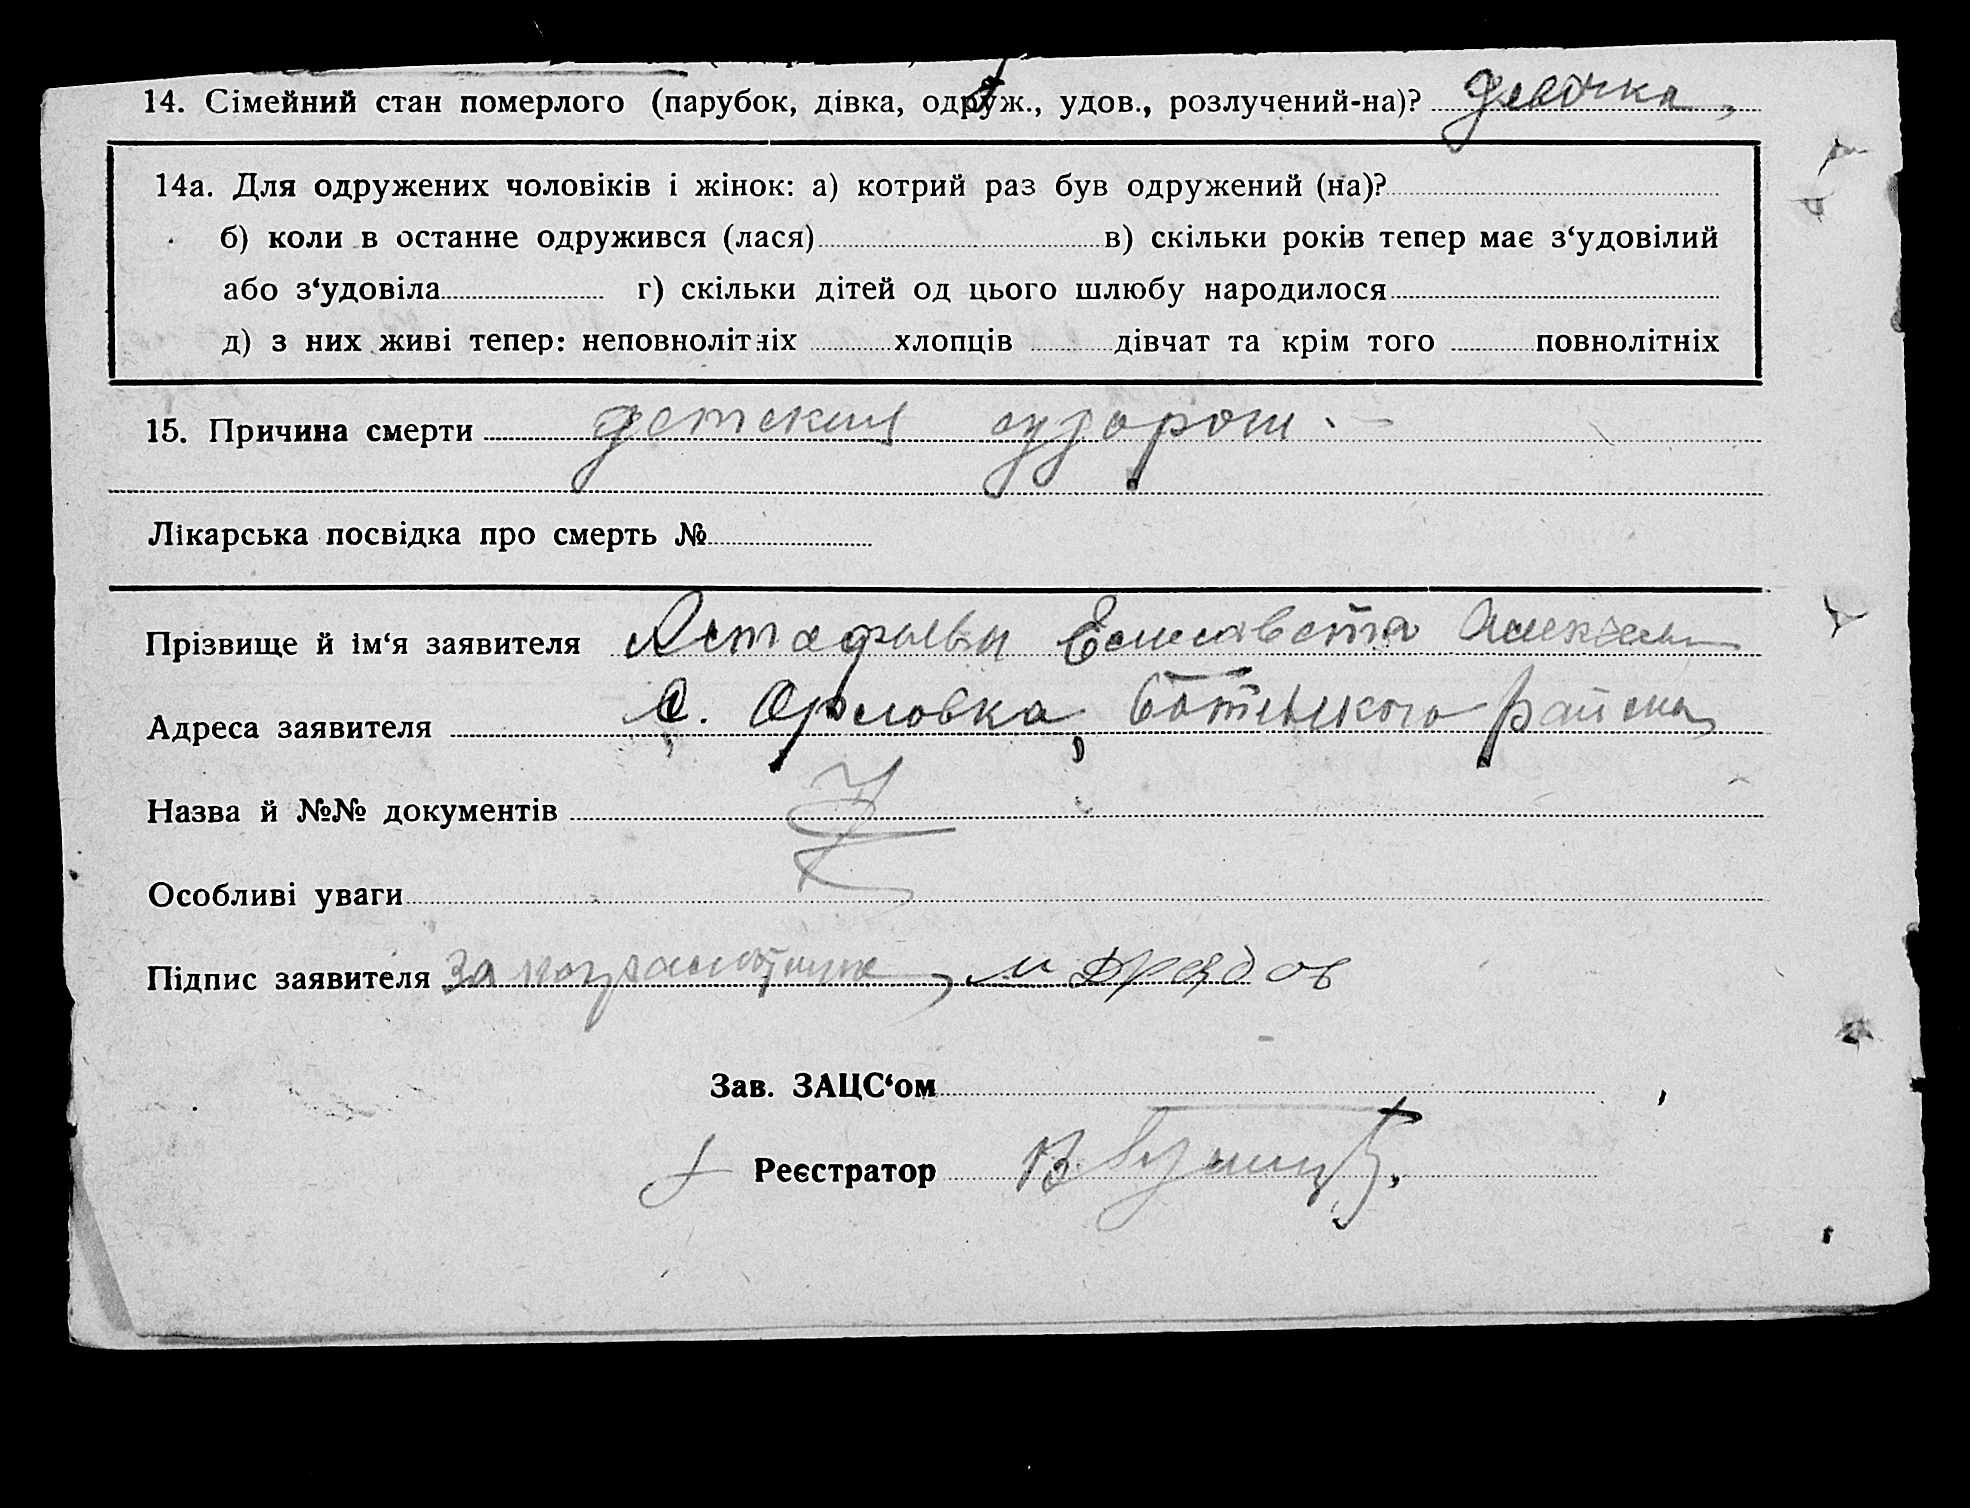 14. Сімейний стан померлого (парубок, дівка, одруж., удов., розлучений-на)? девочка
14а. Для одружених чоловіків і жінок: а) котрий раз був одружений (на)?
б) коли в останне одружився (лася) в) скільки років тепер має з‘удовілий
або з‘удовіла г) скільки дітей од цього шлюбу народилося
д) з них живі тепер: неповнолітніх хлопців дівчат та крім того повнолітніх
15. Причина смерти детския судороги.
Лікарська посвідка про смерть №
Прізвище й ім‘я заявителя Астафьева Елисавета
Адреса заявителя с. Орловка, района
Назва й №№ документів
Особливі уваги
Підпис заявителя За неграмотную
Зав. ЗАЦС‘ом
Реєстратор